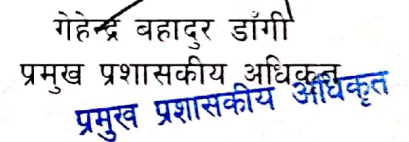 गेहेन्द्र बहादुर डाँगी
प्रमुख प्रशासकीय अधिकृत
प्रमुख प्रशासकीय अधिकृत